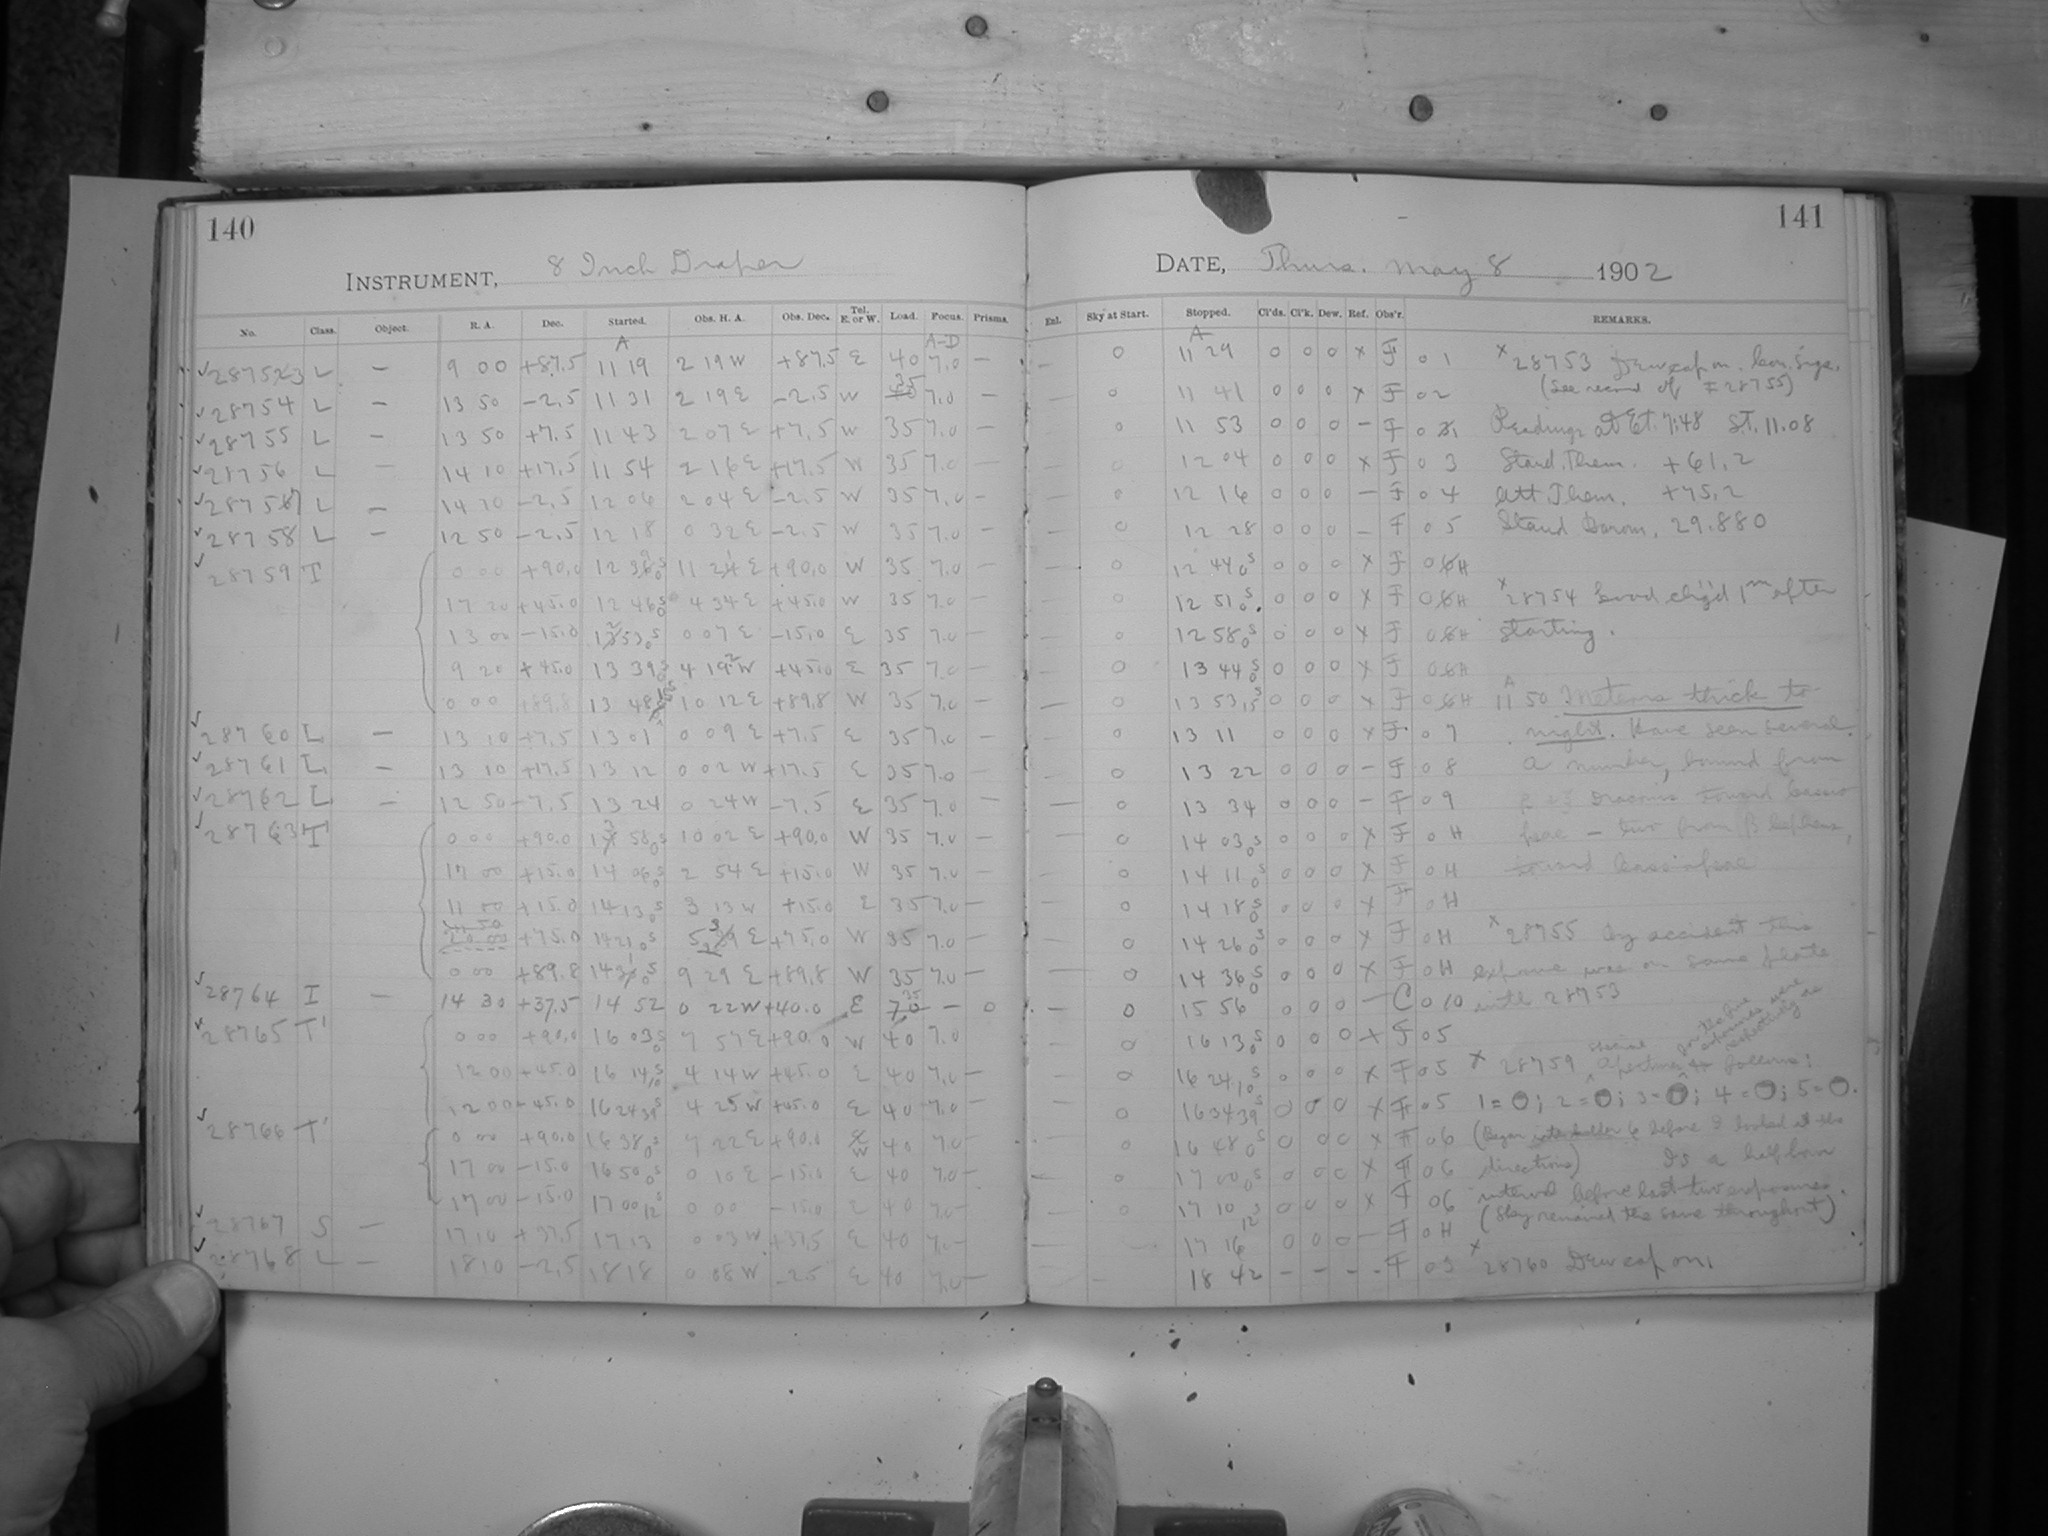 140
INSTRUMENT, 8 Inch Draper
No. Class. Object. R. A. Dec. Started. Obs. H. A. Obs. Dec. Tel. E. or W. Load. Focus. Prisms.
A A-D
28753 L — 9 00 +87.5 11 19 2 19 W +87.5 E 40 7.0 —
28754 L — 13 50 −2.5 11 31 2 19 E −2.5 W 35 7.0 —
28755 L — 13 50 +7.5 11 43 2 07 E +7.5 W 35 7.0 —
21756 L — 14 10 +17.5 11 54 2 16 E +17.5 W 35 7.0 —
28757 L — 14 10 −2.5 12 06 2 04 E −2.5 W 35 7.0 —
28758 L — 12 50 −2.5 12 18 0 32 E −2.5 W 35 7.0 —
28759 T 0 00 +90.0 12 39 0s 11 21 E +90.0 W 35 7.0 —
17 20 +45.0 12 46 0s 4 34 E +45.0 W 35 7.0 —
13 00 −15.0 12 53 0s 0 07 E −15.0 E 35 7.0 —
9 20 +45.0 13 39 0s 4 19 W +45.0 E 35 7.0 —
0 00 +89.8 13 48 10 12 E +89.8 W 35 7.0 —
28760 L — 13 10 +7.5 13 01 0 09 E +7.5 E 35 7.0 —
28761 L — 13 10 +17.5 13 12 0 02 W +17.5 E 35 7.0 —
28762 L — 12 50 −7.5 13 24 0 24 W −7.5 E 35 7.0 —
28763 T' 0 00 +90.0 13 58 0s 10 02 E +90.0 W 35 7.0 —
17 00 +15.0 14 06 0s 2 54 E +15.0 W 35 7.0 —
11 00 +15.0 14 13 0s 3 13 W +15.0 E 35 7.0 —
20 00 +75.0 14 21 0s 5 39 E +75.0 W 35 7.0 —
0 00 +89.8 14 31 0s 9 29 E +89.8 W 35 7.0 —
28764 I — 14 30 +37.5 14 52 0 22 W +40.0 E 35 — 0
28765 T' 0 00 +90.0 16 03 0s 7 57 E +90.0 W 40 7.0
12 00 +45.0 16 14 10s 4 14 W +45.0 E 40 7.0 —
12 00 +45.0 16 24 39s 4 25 W +45.0 E 40 7.0 —
28766 T' 0 00 +90.0 16 38 0s 7 22 E +90.0 W 40 7.0 —
17 00 −15.0 16 50 0s 0 10 E −15.0 E 40 7.0 —
17 00 −15.0 17 00 12s 0 00 −15.0 E 40 7.0 —
28767 S — 17 10 +37.5 17 13 0 03 W +37.5 E 40 7.0 —
28768 L — 18 10 −2.5 18 18 0 08 W −2.5 E 40 7.0 —
141
DATE, Thurs. May 8 1902
Enl. Sky at Start. Stopped. Cl'ds. Cl'k. Dew. Ref. Obs'r. REMARKS.
A
— 0 11 29 0 0 0 x F 0 1 x 28753 Dewcap on.
— 0 11 41 0 0 0 x F 0 2 (See record of I 28755)
— 0 11 53 0 0 0 — F 0 1 Readings at Et. 7:48 S.T. 11.08
— 0 12 04 0 0 0 x F 0 3 Stand. Therm. +61.2
— 0 12 16 0 0 0 — F 0 4 Att Therm. +75.2
— 0 12 28 0 0 0 — F 0 5 Stand Barom. 29.880
— 0 12 44 0s 0 0 0 x F 0 H
— 0 12 51 0s 0 0 0 x F 0 H x 28754 Load chg'd 1m after
— 0 12 58 0s 0 0 0 x F 0 H starting.
— 0 13 44 0s 0 0 0 x F 0 H
— 0 13 53 15s 0 0 0 x F 0 H 11 50 Meteors thick to-
— 0 13 11 0 0 0 x F 0 7 night. Have seen several
— 0 13 22 0 0 0 — F 0 8 a number, bound from
— 0 13 34 0 0 0 — F 0 9 Draconis toward Cassio
— 0 14 03 0s 0 0 0 x F 0 H peae — two from β Cephei,
— 0 14 11 0s 0 0 0 x F 0 H toward Cassiopeae
— 0 14 18 0s 0 0 0 x F 0 H
— 0 14 26 0s 0 0 0 x F 0 H x 28755 by accident this
— 0 14 36 0s 0 0 0 x F 0 H exposure was on same plate
— 0 15 56 0 0 0 — C 0 10 with 28753
0 16 13 0s 0 0 0 x F 0 5
— 0 16 24 10s 0 0 0 x F 0 5 x 28759 for the five exposures were respectively as follows:
— 0 16 34 39s 0 0 0 x F 0 5 1 = ; 2 = ; 3 = ; 4 = ; 5 = .
— 0 16 48 0s 0 0 0 x F 0 6 (Began before I looked at the
— 0 17 00 0s 0 0 0 x F 0 6 directions) Is a half hour
— 0 17 10 12s 0 0 0 x F 0 6 interval before last two exposures.
— 17 16 0 0 0 — F 0 H (Sky remained the same throughout)
— 18 42 — — — — F 0 5 x 28760 Dewcap on.